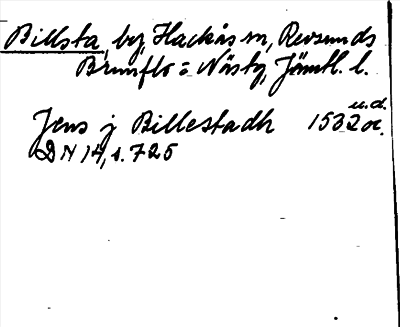 Billsta, by, Hackås sn, Revsunds
Brunflo o Näs tg, Jämtl. l.
u.d.
Jens j Billestadh 1532 or.
DN 14, s. 725